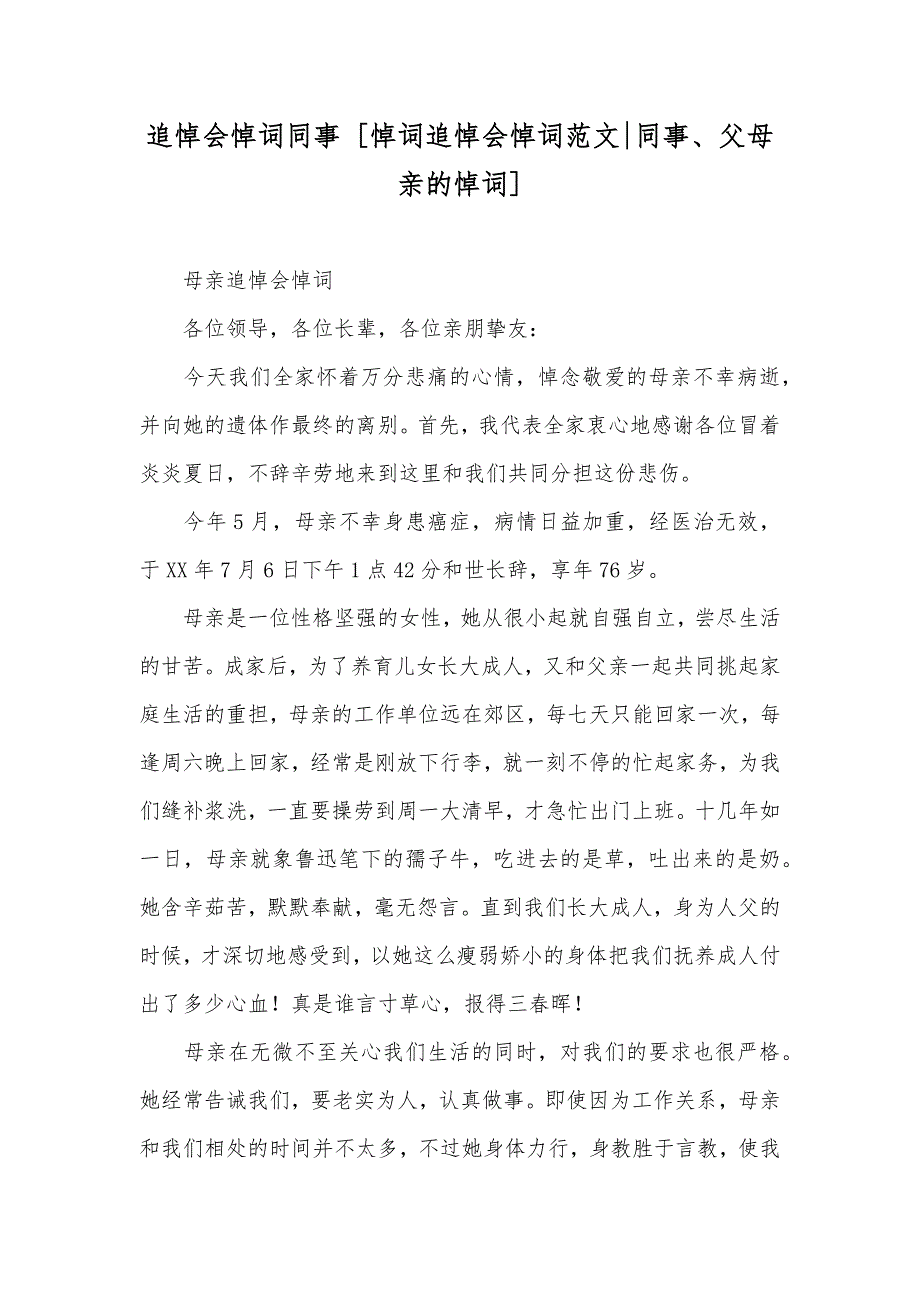 追悼会悼词同事 [悼词追悼会悼词范文|同事、父母
亲的悼词]
母亲追悼会悼词
各位领导，各位长辈，各位亲朋挚友：
今天我们全家怀着万分悲痛的心情，悼念敬爱的母亲不幸病逝，
并向她的遗体作最终的离别。首先，我代表全家衷心地感谢各位冒着
炎炎夏日，不辞辛劳地来到这里和我们共同分担这份悲伤。
今年 5 月，母亲不幸身患癌症，病情日益加重，经医治无效，
于 XX 年 7 月 6 日下午 1 点 42 分和世长辞，享年 76 岁。
母亲是一位性格坚强的女性，她从很小起就自强自立，尝尽生活
的甘苦。成家后，为了养育儿女长大成人，又和父亲一起共同挑起家
庭生活的重担，母亲的工作单位远在郊区，每七天只能回家一次，每
逢周六晚上回家，经常是刚放下行李，就一刻不停的忙起家务，为我
们缝补浆洗，一直要操劳到周一大清早，才急忙出门上班。十几年如
一日，母亲就象鲁迅笔下的孺子牛，吃进去的是草，吐出来的是奶。
她含辛茹苦，默默奉献，毫无怨言。直到我们长大成人，身为人父的
时候，才深切地感受到，以她这么瘦弱娇小的身体把我们抚养成人付
出了多少心血！真是谁言寸草心，报得三春晖！
母亲在无微不至关心我们生活的同时，对我们的要求也很严格。
她经常告诫我们，要老实为人，认真做事。即使因为工作关系，母亲
和我们相处的时间并不太多，不过她身体力行，身教胜于言教，使我